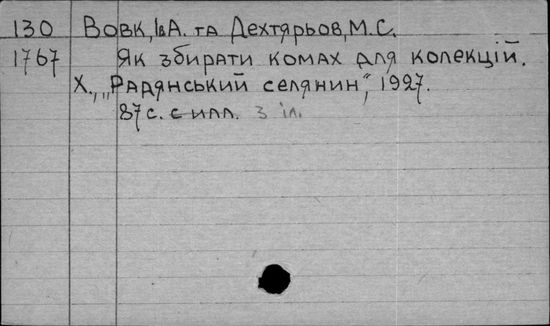 130 Вовк, Ів А. та Дехтярьов, М. С.
1767 Як збирати комах для колекцій.
Х., „Радянський селянин", 1927.
87 с. с илл. з іл.